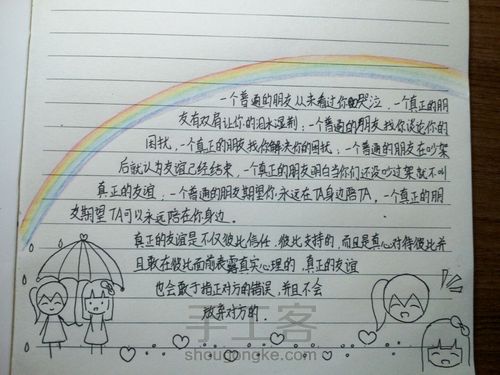 一个普通的朋友从未看过你哭泣，一个真正的朋
友有双肩让你的泪水湿剃；一个普通的朋友找你谈论你的
困扰，一个真正的朋友找你解决你的困扰；一个普通的朋友在吵架
后就认为友谊已经结束，一个真正的朋友明白当你们还没吵过架就不叫
真正的友谊；一个普通的朋友期望你永远在TA身边陪TA，一个真正的朋
友期望TA可以永远陪在你身边．
真正的友谊是不仅彼此信任，彼此支持的，而且是真心对待彼此并
且敢在彼此面前表露真实心理的，真正的友谊
也会敢于指正对方的错误，并且不会
放弃对方的．
手工客
shougongke.com